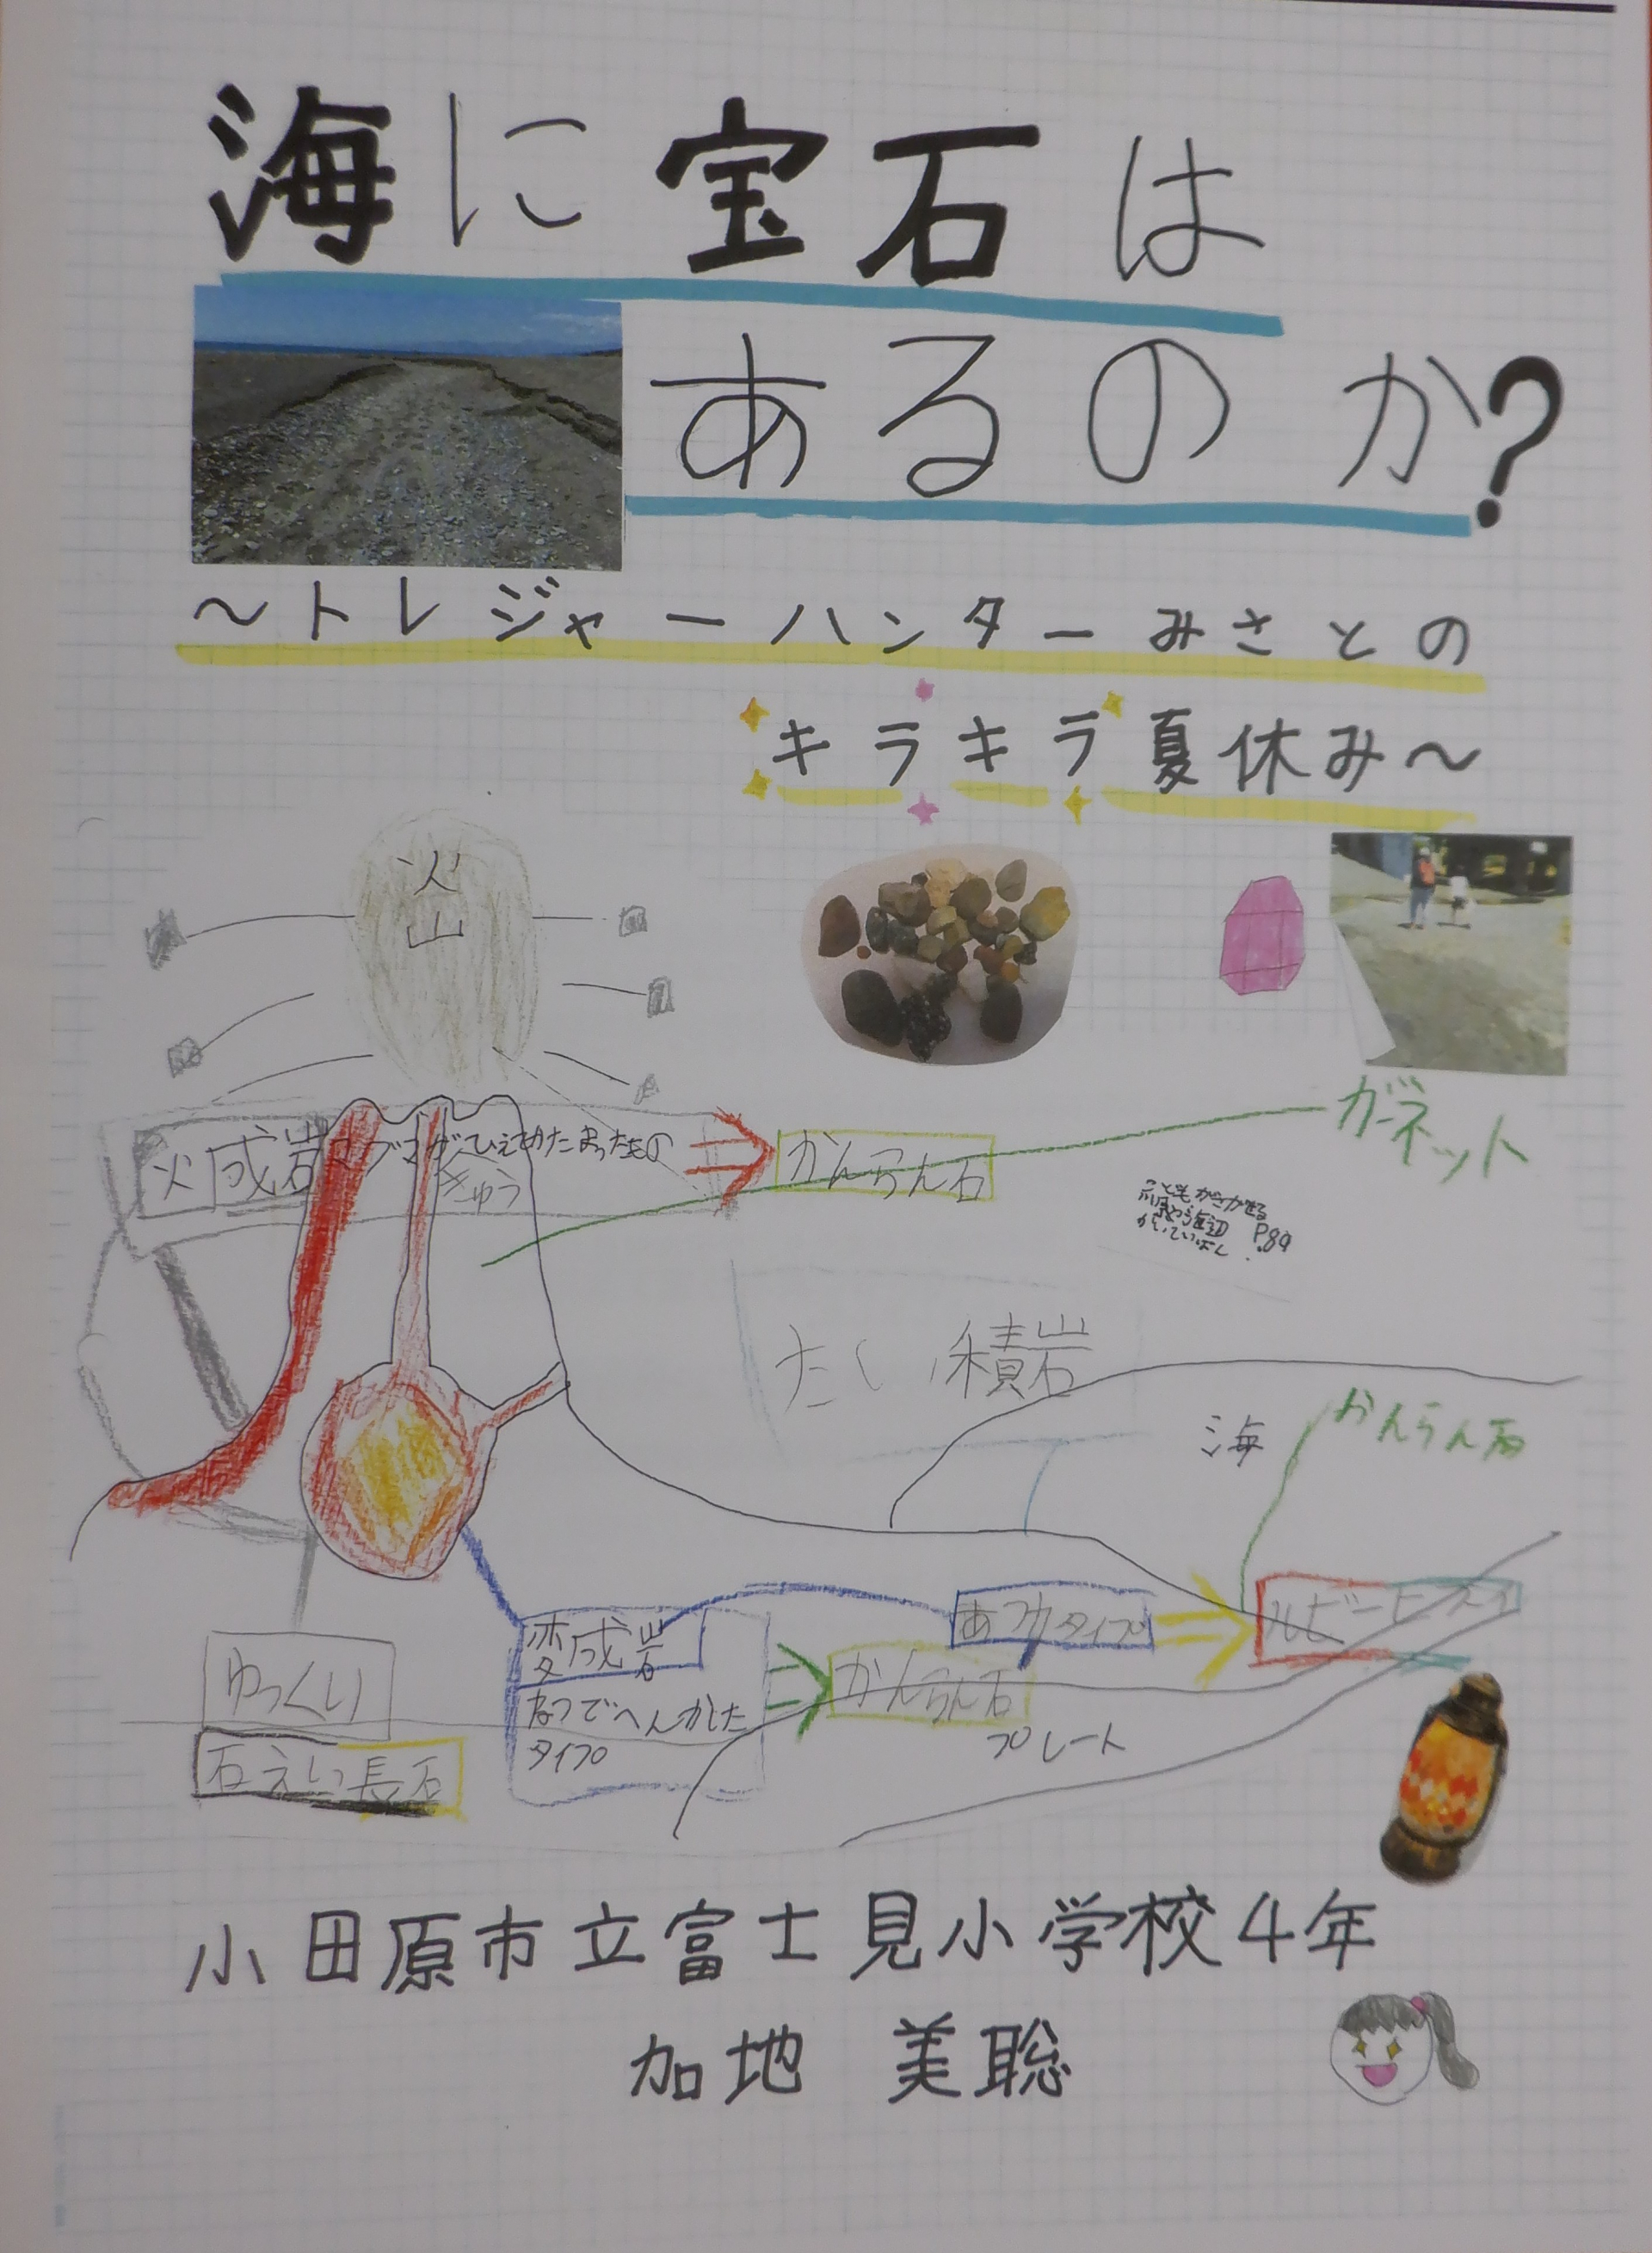 海に宝石は
あるのか?
～トレジャーハンターみさとの
キラキラ夏休み～
火山
火成岩マグマがひえてかたまったもの
きゅう
かんらん石
ガーネット
P.89
たい積岩
海
かんらん石
あつ力タイプ
ルビー
変成岩
ねつでへんかした
タイプ
かんらん石
プレート
ゆっくり
石えい 長石
小田原市立富士見小学校4年
加地 美聡